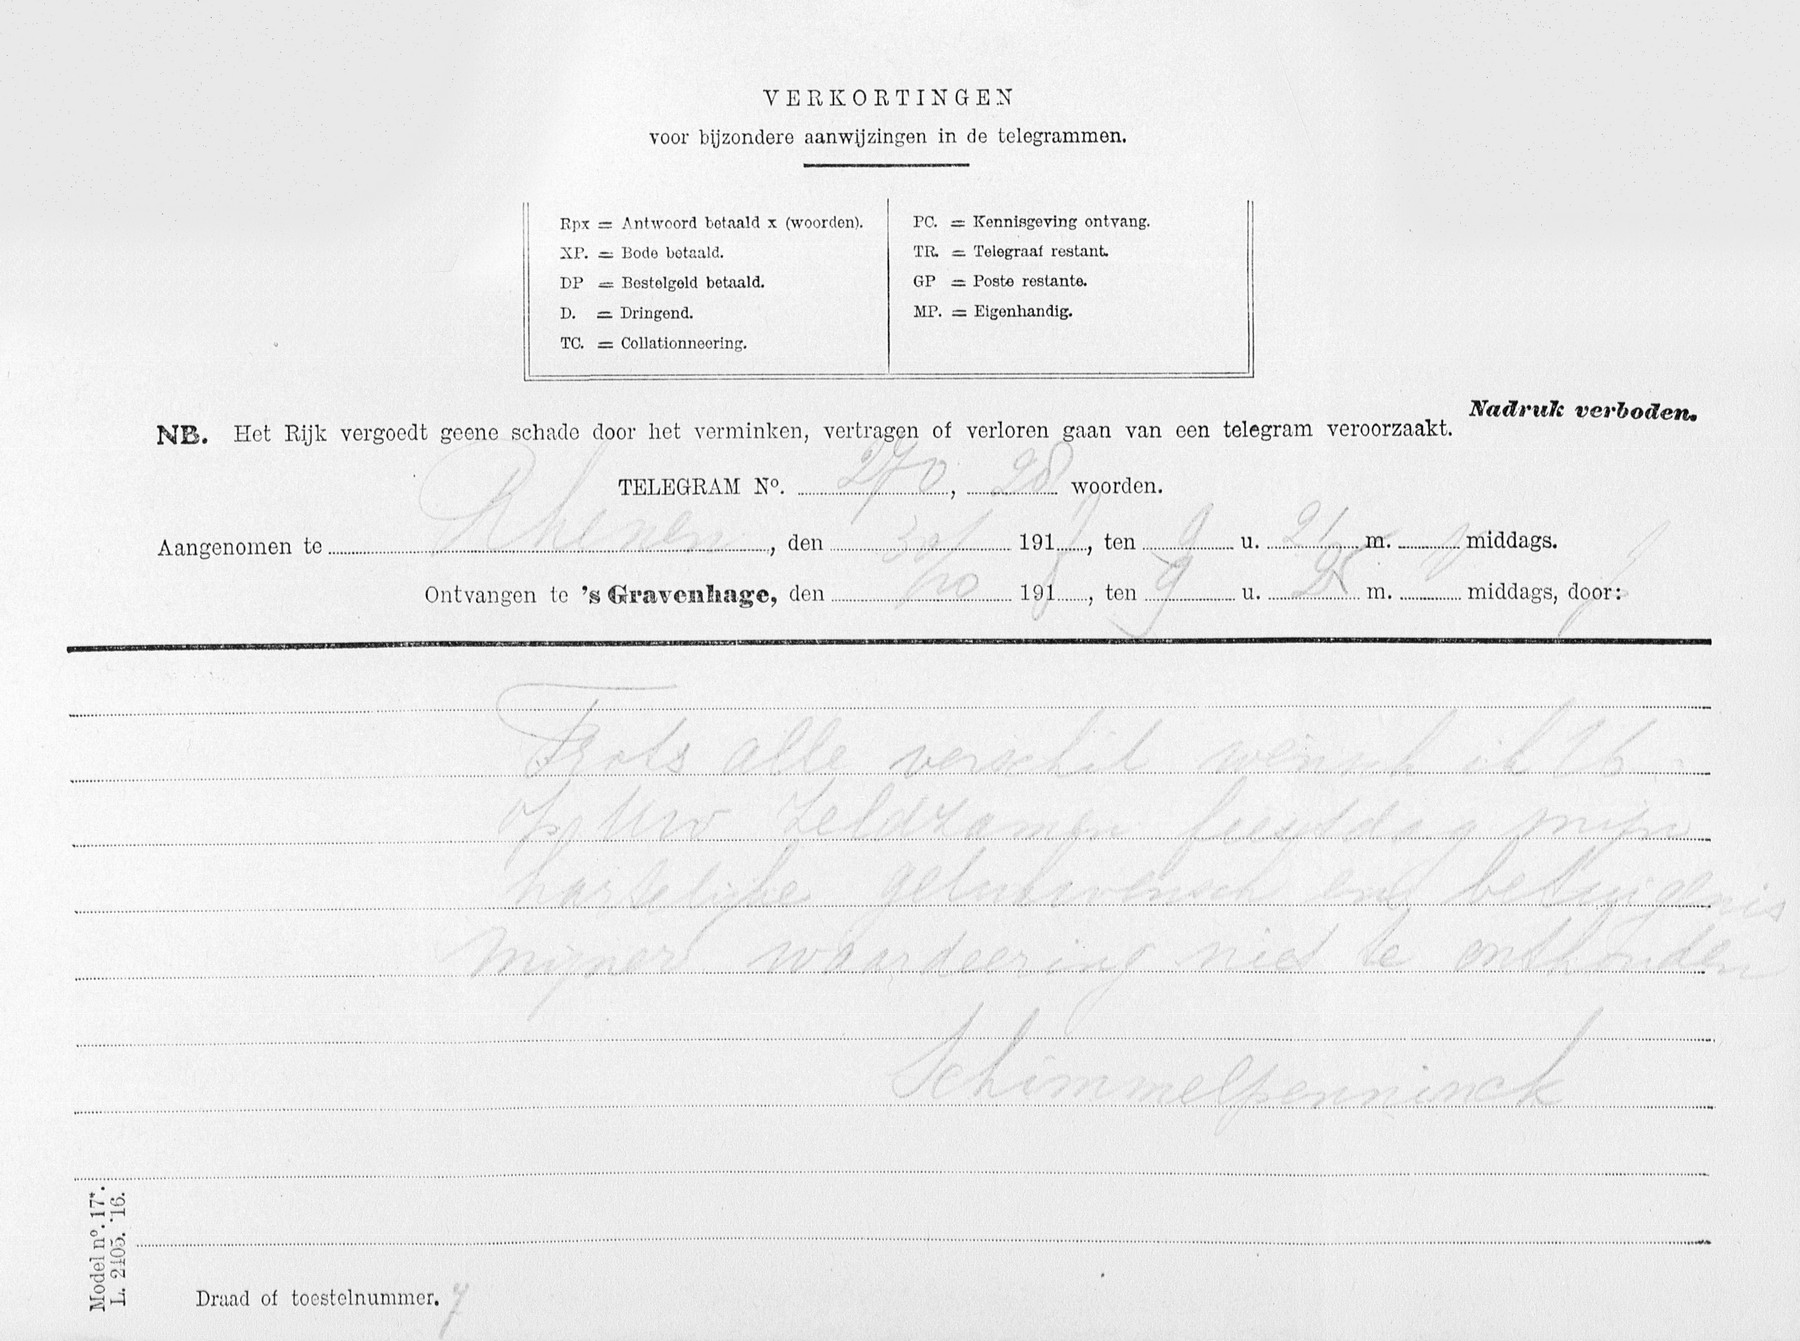 VERKORTINGEN
voor bijzondere aanwijzingen in de telegrammen.
Rpx = Antwoord betaald x (woorden).
XP. = Bode betaald.
DP = Bestelgeld betaald.
D. = Dringend.
TC. = Collationneering.
PC. = Kennisgeving ontvang.
TR. = Telegraaf restant.
GP = Poste restante.
MP. = Eigenhandig.
Nadruk verboden.
NB. Het Rijk vergoedt geene schade door het verminken, vertragen of verloren gaan van een telegram veroorzaakt.
TELEGRAM No. 270, 28 woorden.
Aangenomen te Rhenen, den 30/ 191, ten 9 u. 21 m. middags.
Ontvangen te 's Gravenhage, den /10 191, ten 9 u. 25 m. middags, door:
Trots alle verschil wensch ik
op Uw zeldzamen feestdag mijn
hartelijke gelukwensch en betuigenis
mijner waardeering niet te onthouden
Schimmelpenninck
Model no. 17*.
L. 2405. '16.
Draad of toestelnummer. 7